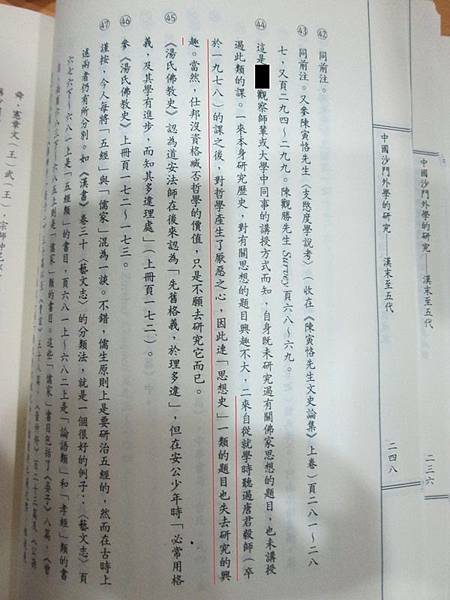 中國沙門外學的研究　漢末至五代
二三六
中國沙門外學的研究　漢末至五代
二四八
㊷ 同前注。
㊸ 同前注。又參陳寅恪先生〈支愍度學說考〉（收在《陳寅恪先生文史論集》上卷）頁二八一～二八
七，又頁二九四～二九九。陳觀勝先生Survey頁六八～六九。
㊹ 這是 觀察師輩或大學中同事的講授方式而知，自身既未研究過有關佛家思想的題目，也未講授
過此類的課。一來本身研究歷史，對有關思想的題目興趣不大，二來自從就學時聽過唐君毅師（卒
於一九七八）的課之後，對哲學產生了厭惡之心，因此連「思想史」一類的題目也失去研究的興
趣。當然，仕邦沒資格喊否哲學的價值，只是不願去研究它而已。
㊺ 《湯氏佛教史》認為道安法師在後來認為「先舊格義，於理多違」，但在安公少年時「必常用格
義，及其學有進步，而知其多違理處」（上冊頁一七二）。
㊻ 參《湯氏佛教史》上冊頁一七二～一七三。
㊼ 謹按，今人每將「五經」與「儒家」混為一談。不錯，儒生原則上是要研治五經的，然而在古時上
述兩者仍有所分別。如《漢書》卷三十〈藝文志〉的分類法，就是一個很好的例子：〈藝文志〉頁
六七六下～六八一上是「五經類」的書目，頁六八一上～六八二上是「論語類」和「孝經」類的書
類的書目。這些「儒家」書目包括了《晏子》八篇，《曾